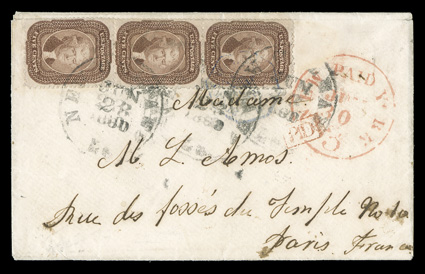 U.S. POSTAGE U.S. POSTAGE U.S. POSTAGE
FIVE CENTS FIVE CENTS FIVE CENTS
NEW
1860
PAID
Madame
M. L. Amos.
Rue des fossés du Temple No 10
Paris France